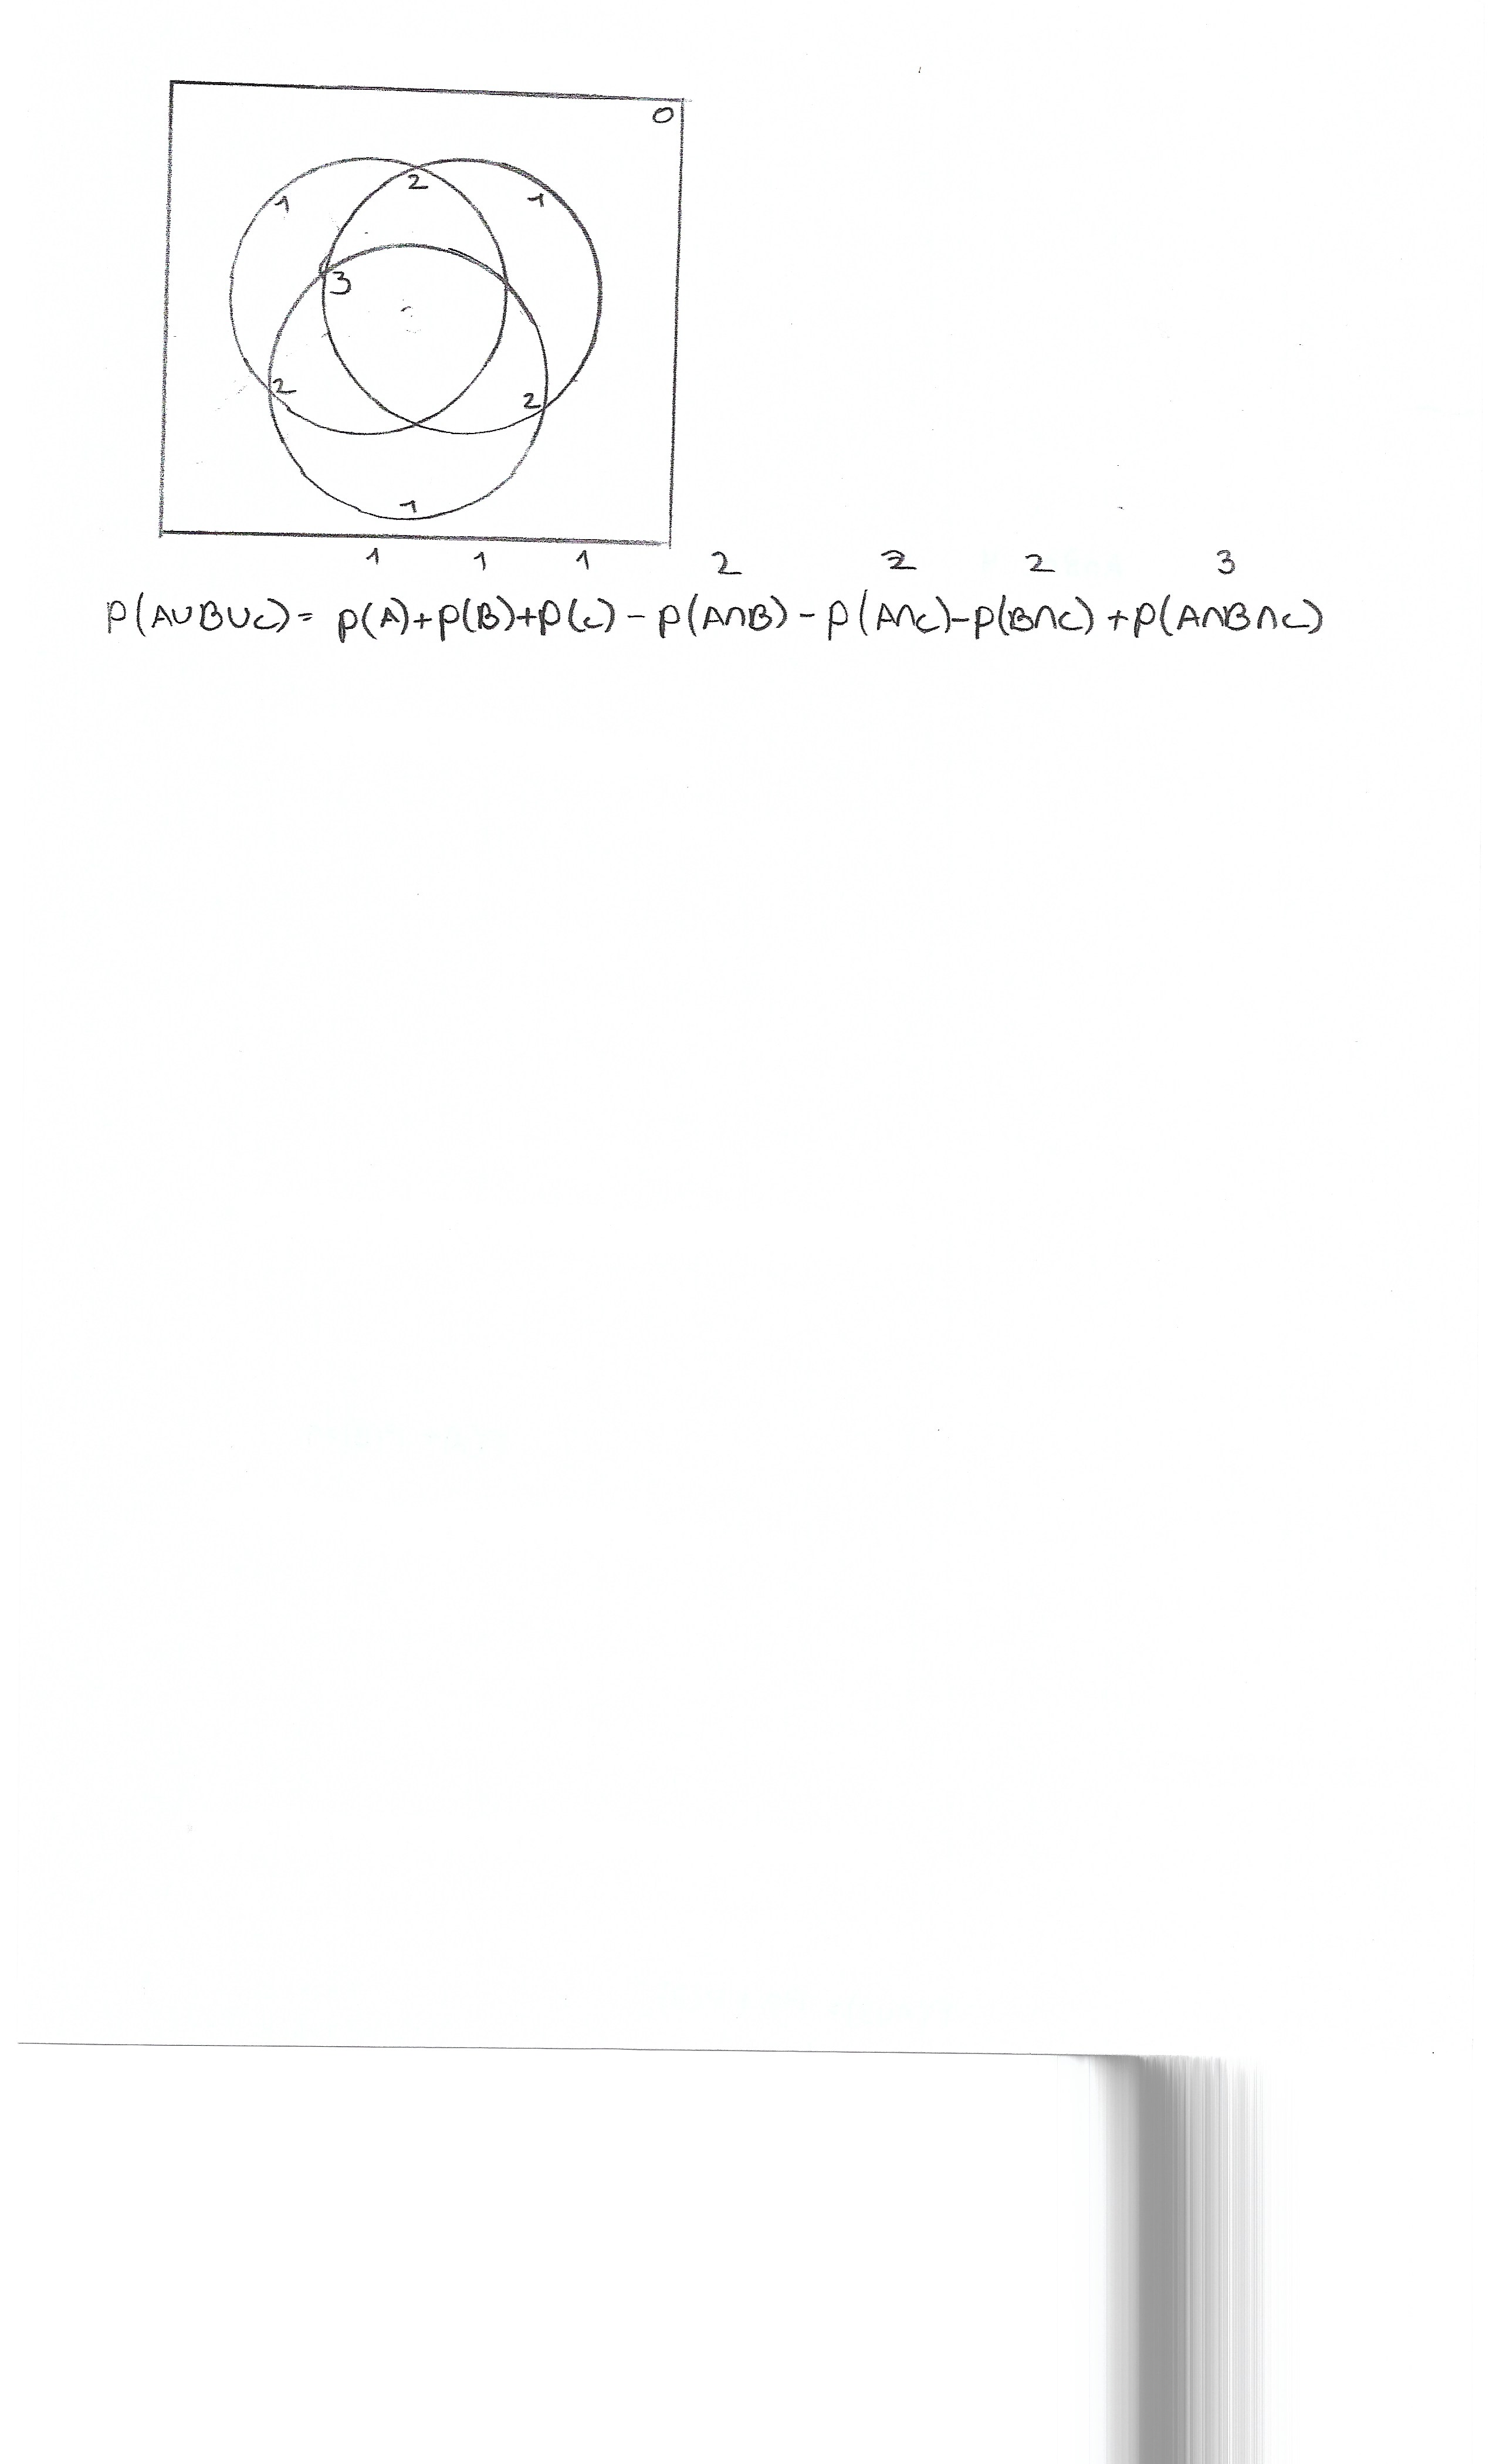 0
1 2 1
3
2 2
1
1 1 1 2 2 2 3
P(A∪B∪C)= P(A)+P(B)+P(C)-P(A∩B)-P(A∩C)-P(B∩C)+P(A∩B∩C)